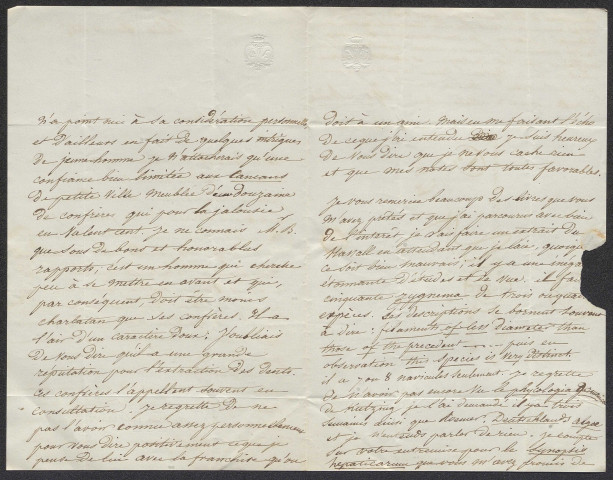 n'a point nui à sa considération personnelle,
et d'ailleurs en fait de quelques intrigues
de jeune homme je n'attacherais qu'une
confiance bien limitée aux cancans
de petite ville meublée d'une douzaine
de confrères qui pour la jalousie
en valent cent. Je ne connais M. B.
que sous de bons et honorables
rapports, c'est un homme qui cherche
peu à se mettre en avant et que,
par conséquent doit être moins
charlatan que ses confrères. Il a
l'air d'un caractère doux; J'oubliais
de vous dire qu'il a une grande
réputation pour l'extraction des dents
ses confrères l'appellent souvent en
consultation. Je regrette de ne
pas l'avoir connu assez personnellement
pour vous dire positivement ce que je
pense de lui avec la franchise qu'on
doit à un ami. mais en me faisant l'écho
de ce que j'ai entendu je suis heureux
de vous dire que je ne vous cache rien
et que mes notes sont toutes favorables.
Je vous remercie beaucoup des livres que vous
m'avez prêtés et que j'ai parcourus avec bien
de l'intérêt. je vais faire un extrait du
Hassall en attendant que je l'aie, quoique
ce soit bien mauvais; il y a une
étonnante d'études et de vue. il fait
cinquante zygnema de trois ou quatre
espèces. Les descriptions se bornent souvent
à dire: filaments of less diameter than
those of the precedent ..... puis en
observation this species is very distinct.
il a 7 ou 8 navicules seulement. Je regrette
de n'avoir pas encore le phycologia
de Kutzing je l'ai demandé il y a trois
semaines ainsi que Deutschlands algae
et je n'entends parler de rien. Je compte
sur votre entremise pour le Synopsis
hepaticarum que vous m'avez promis de